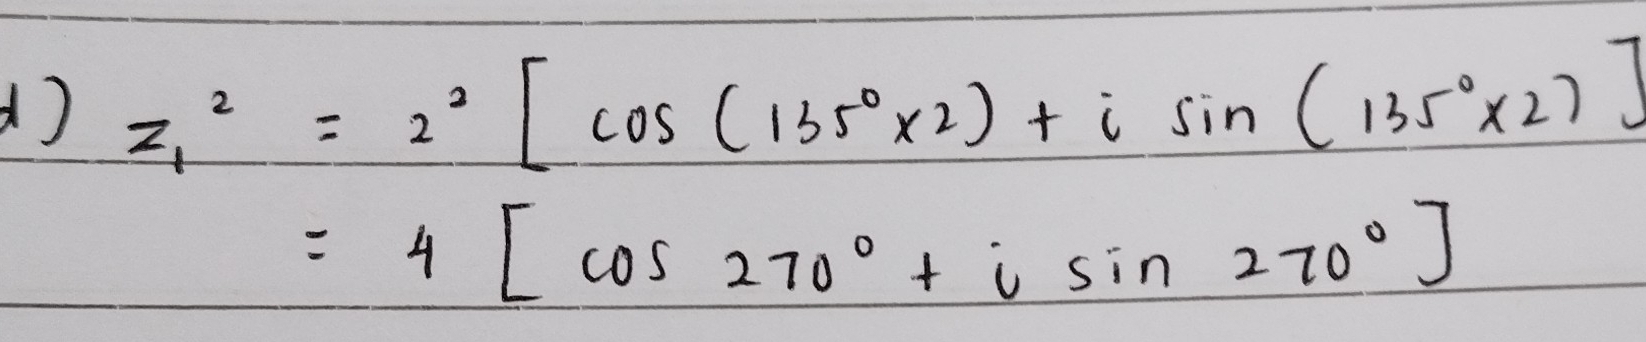 d) z₁² = 2² [ cos (135° x 2) + i sin (135° x 2) ]
= 4 [ cos 270° + i sin 270° ]